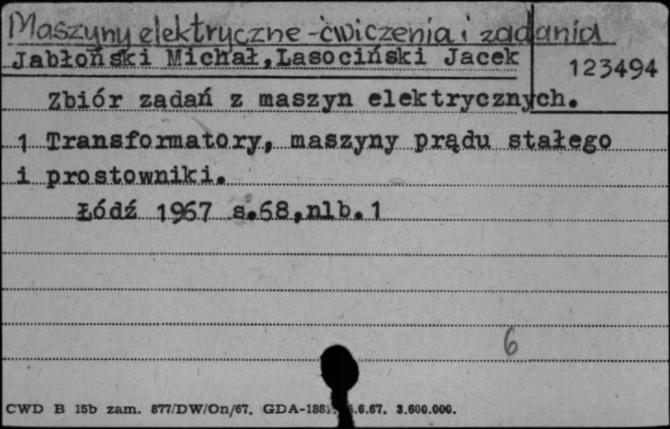 Maszyny elektryczne - ćwiczenia i zadania
Jabłoński Michał, Lasociński Jacek
123494
Zbiór zadań z maszyn elektrycznych.
1 Transformatory, maszyny prądu stałego
i prostowniki.
Łódź 1967 s.68,nlb.1
6
CWD B 15b zam. 877/DW/On/67. GDA-188 .6.67. 3.600.000.